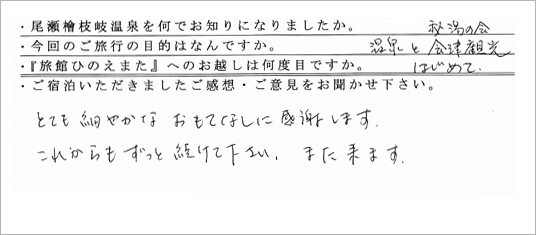 ・尾瀬檜枝岐温泉を何でお知りになりましたか。 秘湯の会
・今回のご旅行の目的はなんですか。 温泉と会津観光
・『旅館ひのえまた』へのお越しは何度目ですか。 はじめて.
・ご宿泊いただきましたご感想・ご意見をお聞かせ下さい。
とても細やかな おもてなしに感謝します.
これからもずっと続けて下さい. また来ます.